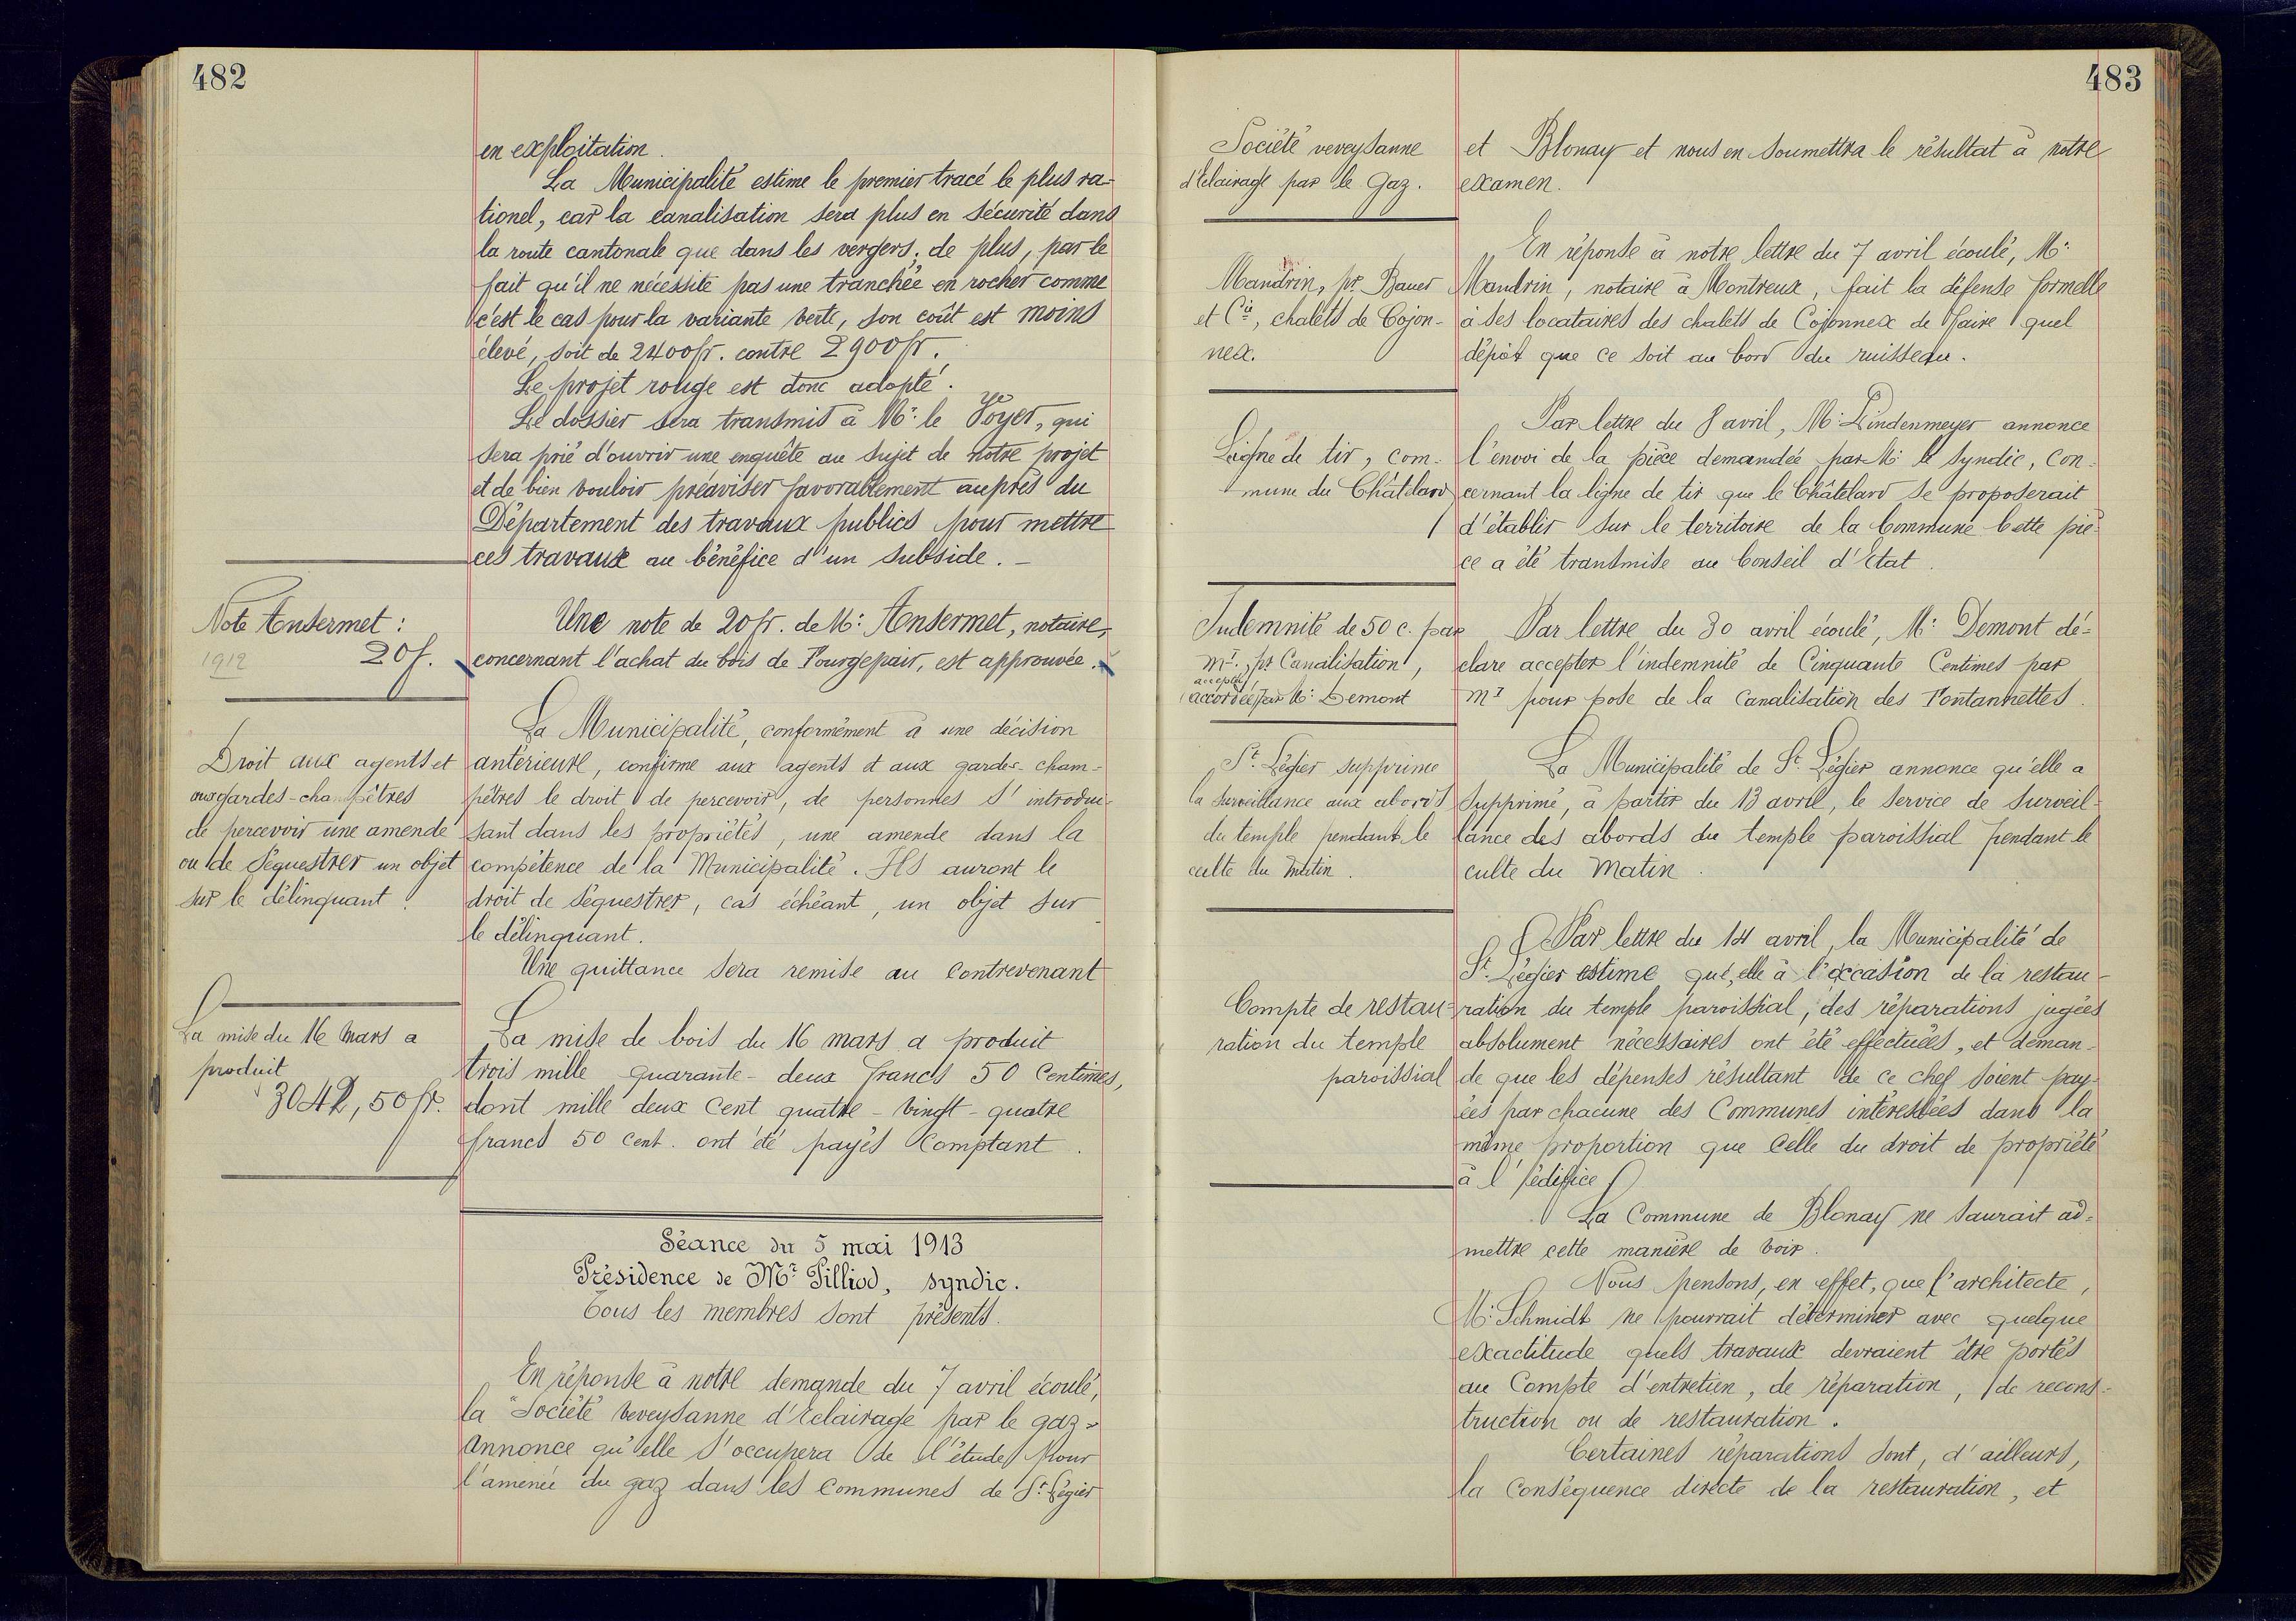 482
en exploitation.
La Municipalité estime le premier tracé le plus ra-
tionel, car la canalisation sera plus en sécurité dans
la route cantonale que dans les vergers; de plus, par le
fait qu'il ne nécessite pas une tranchée en rocher comme
c'est le cas pour la variante verte, son coût est moins
élevé, soit de 2400 fr. contre 2900 fr.
Le projet rouge est donc adopté.
Le dossier sera transmis à Mr. le Voyer, qui
sera prié d'ouvrir une enquête au sujet de notre projet
et de bien vouloir préaviser favorablement auprès du
Département des travaux publics pour mettre
ces travaux au bénéfice d'un subside. –
Note Ansermet :
1912 20 f.
Une note de 20 fr. de Mr. Ansermet, notaire,
concernant l'achat du bois de Fourgepair, est approuvée.
Droit aux agents et
aux gardes-champêtres
de percevoir une amende
ou de séquestrer un objet
sur le délinquant.
La Municipalité, conformément à une décision
antérieure, confirme aux agents et aux gardes-cham-
pêtres le droit de percevoir, de personnes s'introdui-
sant dans les propriétés, une amende dans la
compétence de la Municipalité. Ils auront le
droit de séquestrer, cas échéant, un objet sur
le délinquant.
Une quittance sera remise au contrevenant
La mise du 16 mars a
produit
3042,50 fr.
La mise de bois du 16 mars a produit
trois mille quarante-deux francs 50 centimes,
dont mille deux cent quatre-vingt-quatre
francs 50 cent. ont été payés comptant.
Séance du 5 mai 1913
Présidence de Mr. Pilliod, syndic.
Tous les membres sont présents.
En réponse à notre demande du 7 avril écoulé,
la "Société veveysanne d'Eclairage par le gaz"
annonce qu'elle s'occupera de l'étude pour
l'amenée du gaz dans les communes de St. Légier
483
Société veveysanne
d'éclairage par le gaz.
et Blonay et nous en soumettra le résultat à notre
examen.
Mandrin, pr. Bauer
et Cie, chalets de Cojon-
nex.
En réponse à notre lettre du 7 avril écoulé, Mr.
Mandrin, notaire à Montreux, fait la défense formelle
à ses locataires des chalets de Cojonnex de faire quel
dépôt que ce soit au bord du ruisseau.
Ligne de tir, com-
mune du Châtelard
Par lettre du 8 avril, Mr. Lindenmeyer annonce
l'envoi de la pièce demandée par Mr. le Syndic, con-
cernant la ligne de tir que le Châtelard se proposerait
d'établir sur le territoire de la Commune Cette piè-
ce a été transmise au Conseil d'Etat.
Indemnité de 50 c. par
mt. pr. Canalisation,
acceptée
accordée par Mr. Demont
Par lettre du 30 avril écoulé, Mr. Demont dé-
clare accepter l'indemnité de Cinquante Centimes par
mt pour pose de la Canalisation des Fontannettes.
St. Légier supprime
la surveillance aux abords
du temple pendant le
culte du matin.
La Municipalité de St. Légier annonce qu'elle a
supprimé, à partir du 13 avril, le service de surveil-
lance des abords du temple paroissial pendant le
culte du Matin.
Compte de restau-
ration du temple
paroissial
Par lettre du 14 avril, la Municipalité de
St. Légier estime que, elle à l'occasion de la restau-
ration du temple paroissial, des réparations jugées
absolument nécessaires ont été effectuées, et deman-
de que les dépenses résultant de ce chef soient pay-
ées par chacune des Communes intéressées dans la
même proportion que celle du droit de propriété
à l'édifice.
La Commune de Blonay ne saurait ad-
mettre cette manière de voir.
Nous pensons, en effet, que l'architecte,
Mr. Schmidt ne pourrait déterminer avec quelque
exactitude quels travaux devraient être portés
au Compte d'entretien, de réparation, de recons-
truction ou de restauration.
Certaines réparations sont, d'ailleurs,
la conséquence directe de la restauration, et